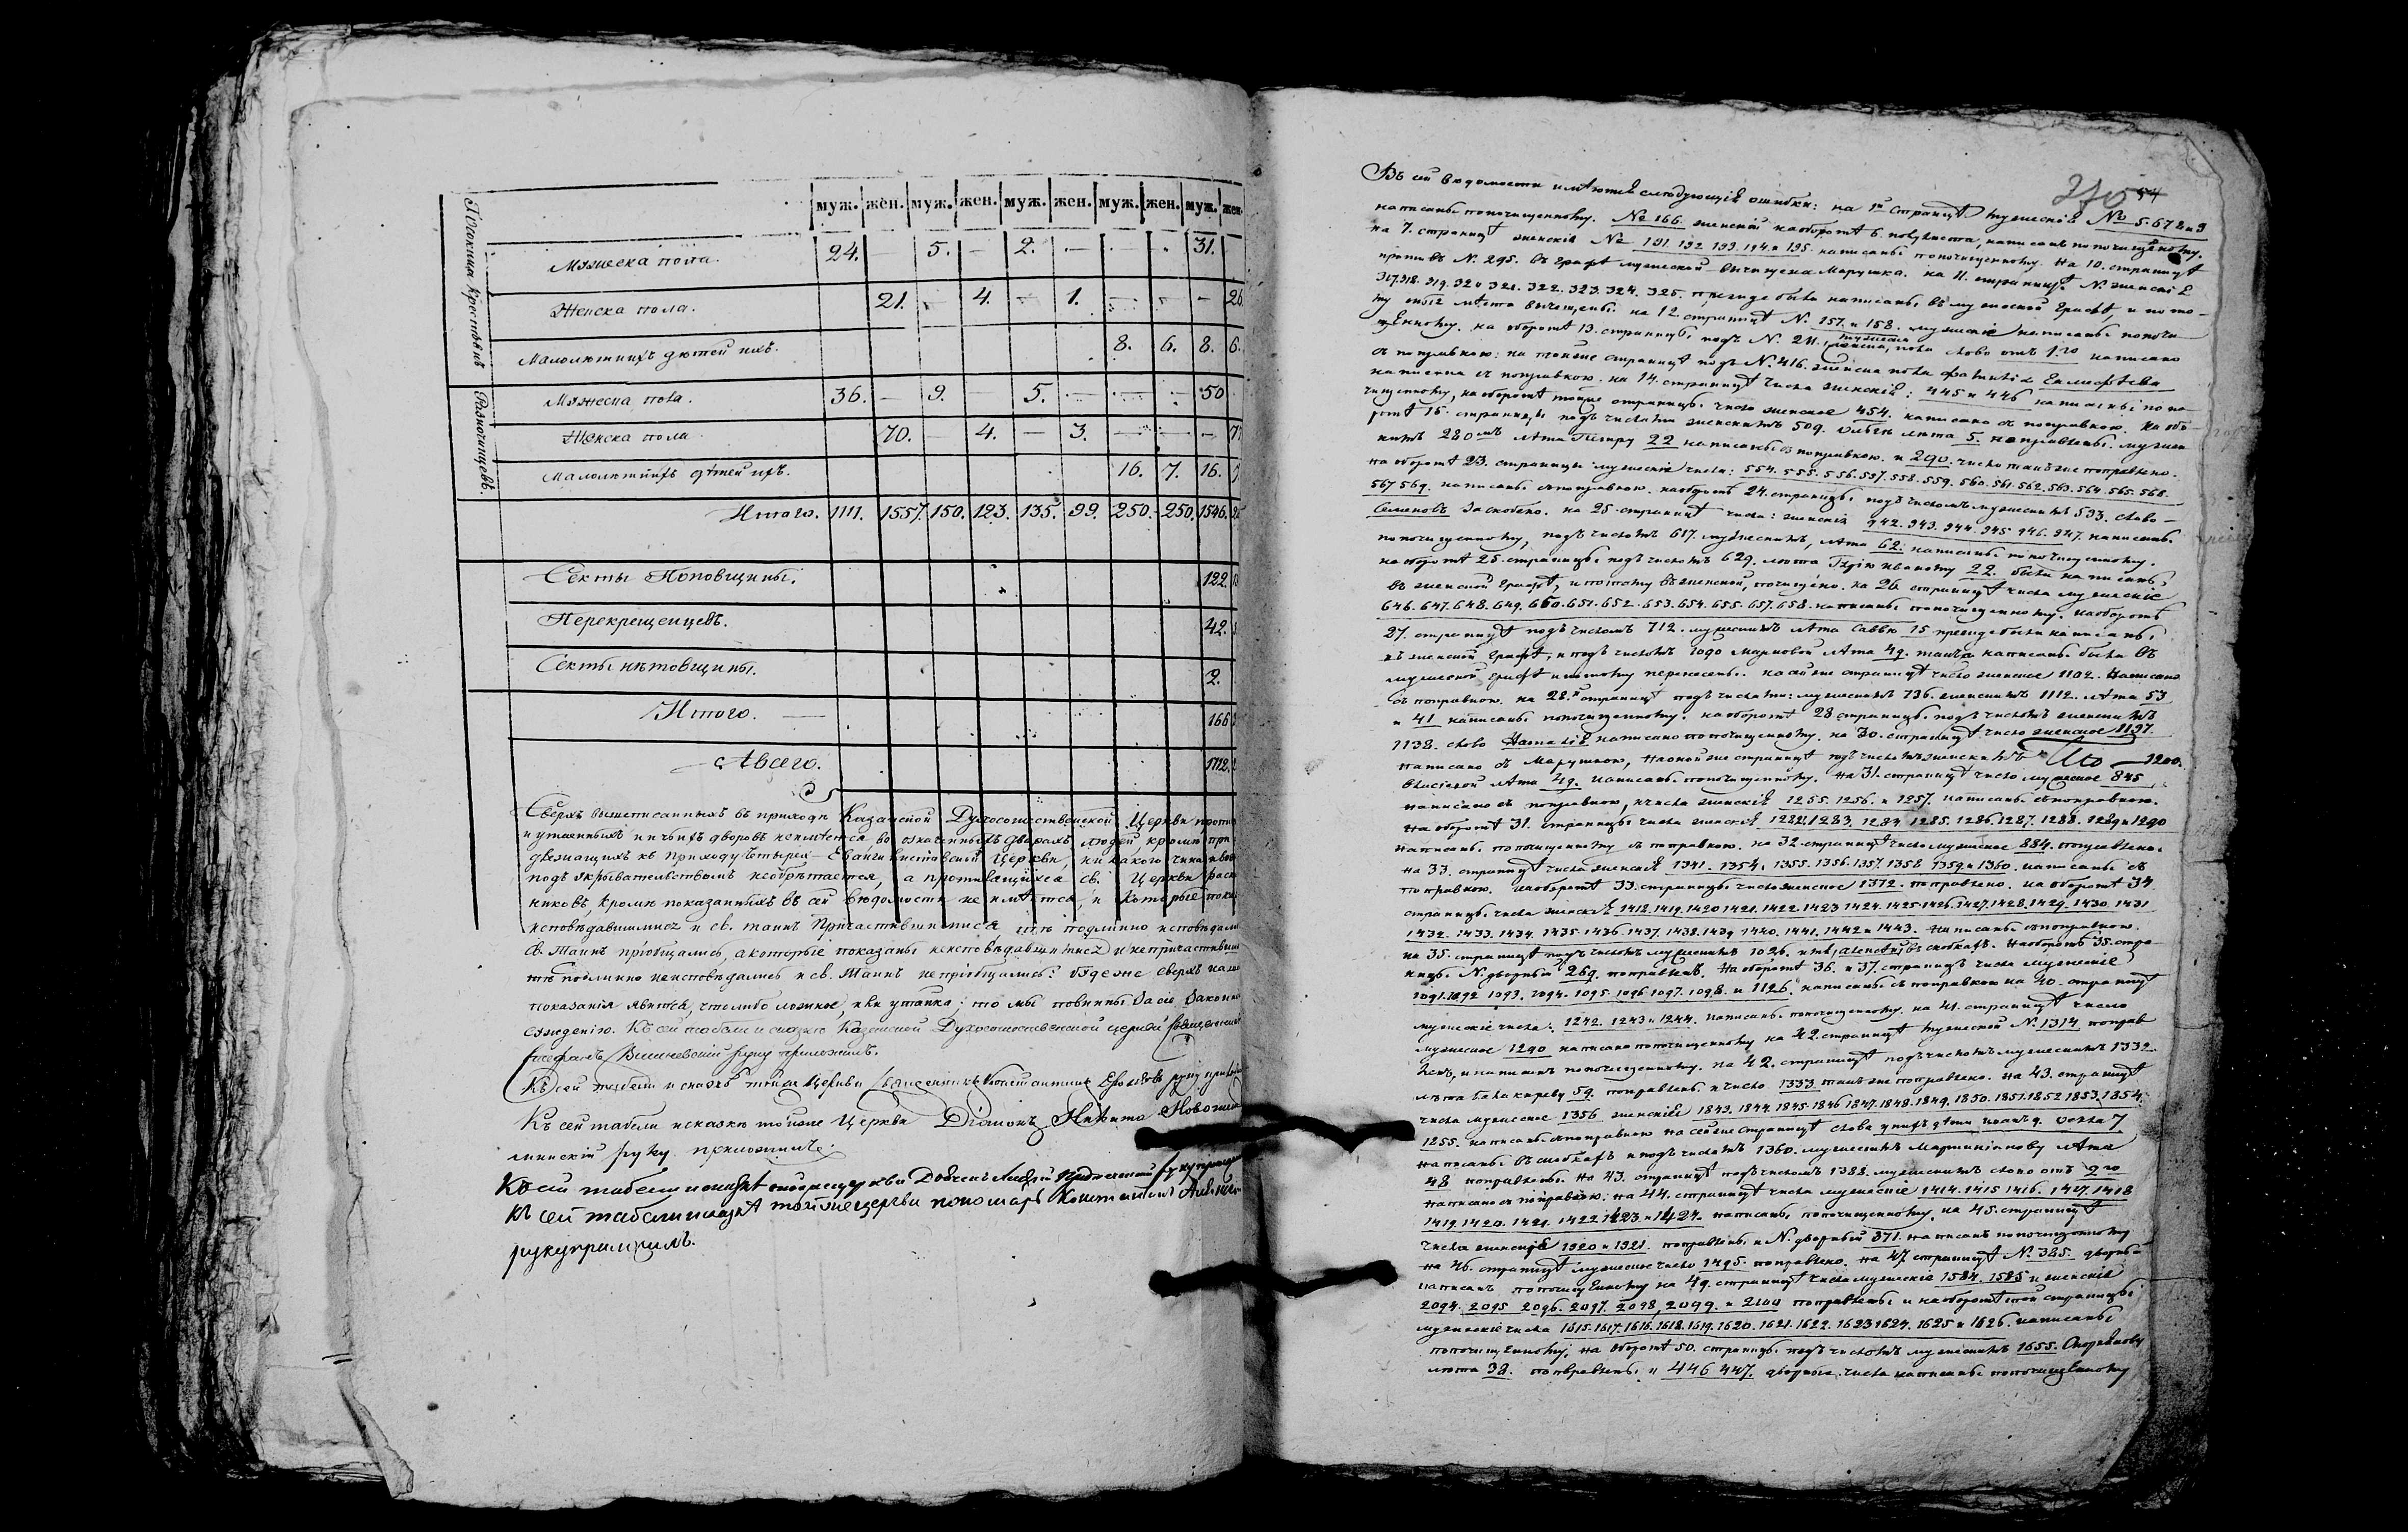 муж. жен. муж. жен. муж. жен. муж. жен. муж. жен.
Мужеска пола. 24. — 5. — 2. — 31.
Женска пола. 21. — 4. — 1. — 26.
Малолетнихъ детей ихъ. 8. 6. 8. 6.
Разночинцевъ.
Мужеска пола. 36. — 9. — 5. — 50
Женска пола 70. — 4. — 3. —
Малолетнихъ детей ихъ. 16. 7. 16.
Итого. 1111. 1557. 150. 123. 135. 99. 250. 250. 1546.
Секты Поповщины. 122.
Перекрещенцевъ. 42.
Секты нетовщины. 2.
Итого. — 166
Авсего. 1712.
Сверхъ вышеписанныхъ въ приходе Казанской Духосошественской Церкви
и утаенныхъ ничьихъ дворовъ неимеется во означенныхъ дворахъ людей, кроме при
лежащихъ къ приходу Четырех-Евангелистовской Церкви, ни какого чина
подъ укрывательствомъ необретается, а противящихся св. Церкви
никовъ, кроме показанныхъ въ сей ведомости не имеется, и Которые
исповедавшимися и св. таинъ Причастившимися те подлинно исповедали
св. Таинъ приобщались, а которые показаны неисповедавшимися и непричастивши
те подлинно неисповедались и св. Таинъ неприобщались: будеже сверхъ
показания явится, что либо ложное, или утайка; то мы повинны за сие законно
суждению. Къ сей табели и сказке Казанской Духосошественской церкви Священник
Стефанъ Вишневский руку приложилъ.
Къ сей табели и сказке тойже Церкви Священникъ Константинъ руку
Къ сей табели исказке тойже Церкви Дiаконъ Никита
руку приложилъ.
Къ сей табели исказке церкви Дьячекъ
Къ сей табели исказке тойже церкви пономарь Константинъ
руку приложилъ.
54
Въ сей ведомости имеются следующiя ошибки: на 1й странице мужескiя № 5. 6 7 8 и 9
написаны попочищенному. № 166. женской наоборотѣ 6. написанъ попочищенному.
на 7. странице женскiя № 191. 192. 193. 194. и 195 написаны попочищенному. На 10. странице
противъ N. 295. въ графе мужеской вычищена Марушка. на 11. странице N. женскiе
317. 318. 319. 320 321. 322. 323. 324. 325. прежде были написаны въ мужеской графе, и пото-
му оные места вычещены. на 12. странице N. 157. и 158. мужскiе написаны попочи-
щенному. на обороте 13. страницы подъ N. 211. пола слово отъ 1го написано
съ поправкою: на тойже странице подъ N. 416. женска пола фамилiя
написана съ поправкою. на 14. странице числа женскiя: 445 и 446 написаны попо-
чищенному, на обороте тойже страницы число женское 454. написано съ поправкою. На обо-
роте 15. страницы подъ числами женскимъ 509. лета 5. поправлены. мужес
кимъ 280мъ лета Петру 22 написаны съ поправкою. и 290. число такъже поправлено.
на обороте 23. страницы мужескiя числа: 554. 555. 556. 557. 558. 559. 560. 561. 562. 563. 564. 565. 568.
567 569. написаны съ поправкою. на обороте 24. страницы подъ числомъ мужескимъ 593. слово —
Семеновъ заскоблено. на 25 странице числа: женскiя 942. 943. 944. 945 946. 947. написаны
попочищенному, подъ числомъ 617. мужескимъ, лета 62. написаны попочищенному.
на обороте 25. страницы подъ числомъ 629. лета Иванову 22. были написаны
въ женской графе, и потому въ женской, почищено. на 26. странице числа мужескiе
646. 647. 648. 649. 650. 651. 652. 653. 654. 655. 657. 658. написаны попочищенному. на обороте
27. странице подъ числомъ 712. мужескимъ лета Савве 15 прежде были написаны
въ женской графе, и подъ числомъ 1090 лета 49. такъже написаны были въ
мужеской графе и потому перенесены. на сейже странице число женское 1102. Написано
съ поправкою. на 28.й странице подъ числами: мужескимъ 736. женскимъ 1112. лета 53
и 41 написаны попочищенному. на обороте 28 страницы подъ числомъ женскимъ
1138. слово Наталiя написано попочищенному. на 30. странице число женское 1197.
написано съ Марушкою, наонойже странице подъ числомъ женскимъ 1200.
лета 49. написаны попочищенному. на 31. странице число мужеское 845
написано съ поправкою, и числа женскiя 1255. 1256. и 1257. написаны съ поправкою.
на обороте 31. страницы числа женскiя 1282. 1283. 1284. 1285. 1286. 1287. 1288. 1289 и 1290
написаны попочищенному съ поправкою. на 32. странице число мужеское 884. поправлено.
на 33. странице числа женскiя 1341. 1354. 1355. 1356. 1357. 1358 1359 и 1360. написаны съ
поправкою. на обороте 33. страницы число женское 1372. поправлено. на обороте 34
страницы числа женскiя 1418. 1419. 1420 1421. 1422. 1423 1424. 1425. 1426. 1427. 1428. 1429. 1430. 1431
1432. 1433. 1434. 1435. 1436. 1437. 1438. 1439 1440. 1441. 1442 и 1443. написаны съ поправкою.
на 35. странице подъ числомъ мужескимъ 1026. въ скобкахъ. На обороте 35. стра-
ницы N. дворный 269. поправленъ. На обороте 36. и 37. страницъ числа мужескiе
1091. 1092 1093. 1094. 1095. 1096. 1097. 1098. и 1126. написаны съ поправкою на 40. странице
мужескiе числа: 1242. 1243 и 1244. написаны попочищенному. на 41. странице число
мужеское 1290 написано попочищенному на 42. странице мужеской N. 1314 поправ
ленъ, и написанъ попочищенному. На 42. странице подъ числомъ мужескимъ 1332.
лета 59. поправлены и число 1333 такъже поправлено. на 43. странице
числа мужеское 1356 женскiе 1843. 1844. 1845. 1846 1847. 1848. 1849. 1850. 1851. 1852 1853. 1854.
1255. написаны съ поправкою на сейже странице слова у нихъ дети
написаны въ скобкахъ и подъ числомъ 1360. мужескимъ Мартинiанову лета
48 поправлены. На 43. странице подъ числомъ 1388. мужескимъ слово отъ 9го
написано съ поправкою: на 44. странице числа мужескiе 1414. 1415 1416. 1417. 1418
1419. 1420. 1421. 1422 1423. и 1424. написаны попочищенному. на 45. странице
числа женскiя 1920 и 1921. поправлены и N. дворный 371. написанъ попочищенному
на 46. странице мужеское число 1495. поправлено. на 47 странице N. 385. дворный
написанъ попочищенному на 49. странице числа мужескiе 1584. 1585 и женскiя
2094. 2095 2096. 2097. 2098, 2099. и 2100 поправлены и на обороте той страницы
мужескiе числа 1615. 1617. 1616. 1618. 1619. 1620. 1621. 1622. 1623 1624. 1625 и 1626. написаны
попочищенному; на обороте 50. страницы подъ числомъ мужескимъ 1655.
лета 38. поправлены и 446 447. дворные числа написаны попочищенному